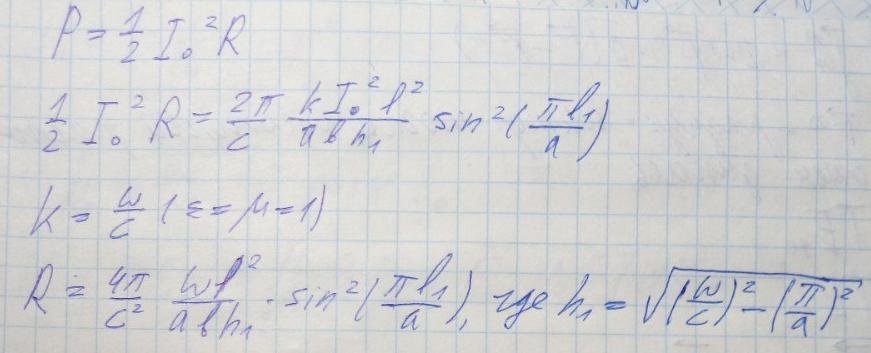 P = 1/2 I₀² R
1/2 I₀² R = 2π/c · k I₀² l²/(a b h₁) sin² (π l₁/a)
k = ω/c (ε = μ = 1)
R = 4π/c² · ω l²/(a b h₁) · sin² (π l₁/a), где h₁ = √((ω/c)² − (π/a)²)